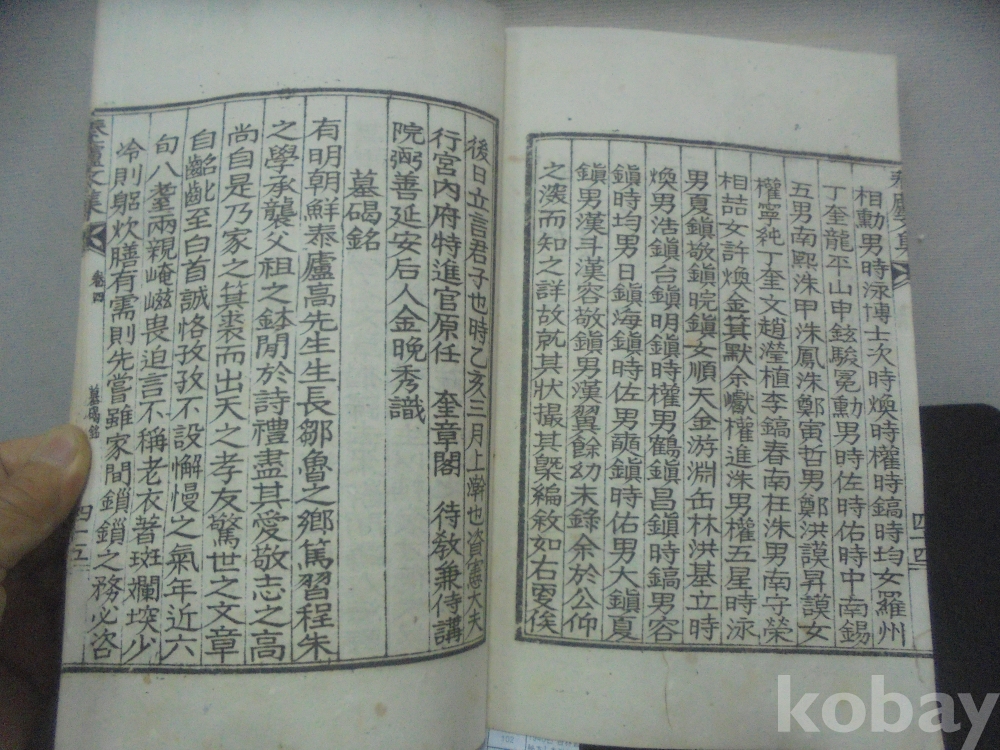 相勳男時泳博士次時煥時權時鎬時均女羅州
丁奎龍平山申鉉駿冕勳男時佐時佑時中南錫
五男南熙洙甲洙鳳洙鄭寅哲男鄭洪謨昇謨女
權寧純丁奎文趙瀅植李鎬春南在洙男南守榮
相喆女許煥金萁默余巘權進洙男權五星時泳
男夏鎭敬鎭晥鎭女順天金游淵缶林洪基立時
煥男浩鎭台鎭明鎭時權男鶴鎭昌鎭時鎬男容
鎭時均男日鎭海鎭時佐男奭鎭時佑男大鎭夏
鎭男漢斗漢容敬鎭男漢翼餘幼未錄余於公仰
之深而知之詳故就其狀撮其槩編敘如右爰俟
四十四
後日立言君子也時乙亥三月上澣也資憲大夫
行宮內府特進官原任 奎章閣 待敎兼侍講
院弼善延安后人金晩秀識
墓碣銘
有明朝鮮泰廬高先生生長鄒魯之鄕篤習程朱
之學承襲父祖之鉢閒於詩禮盡其愛敬志之高
尚自是乃家之箕裘而出天之孝友驚世之文章
自齠齔至白首誠恪孜孜不設懈慢之氣年近六
旬八耋兩親崦嵫喪迫言不稱老衣著斑斕堗少
冷則躬炊膳有需則先嘗雖家間鎖鎖之務必咨
泰廬文集 卷四 墓碣銘 四十五
kobay